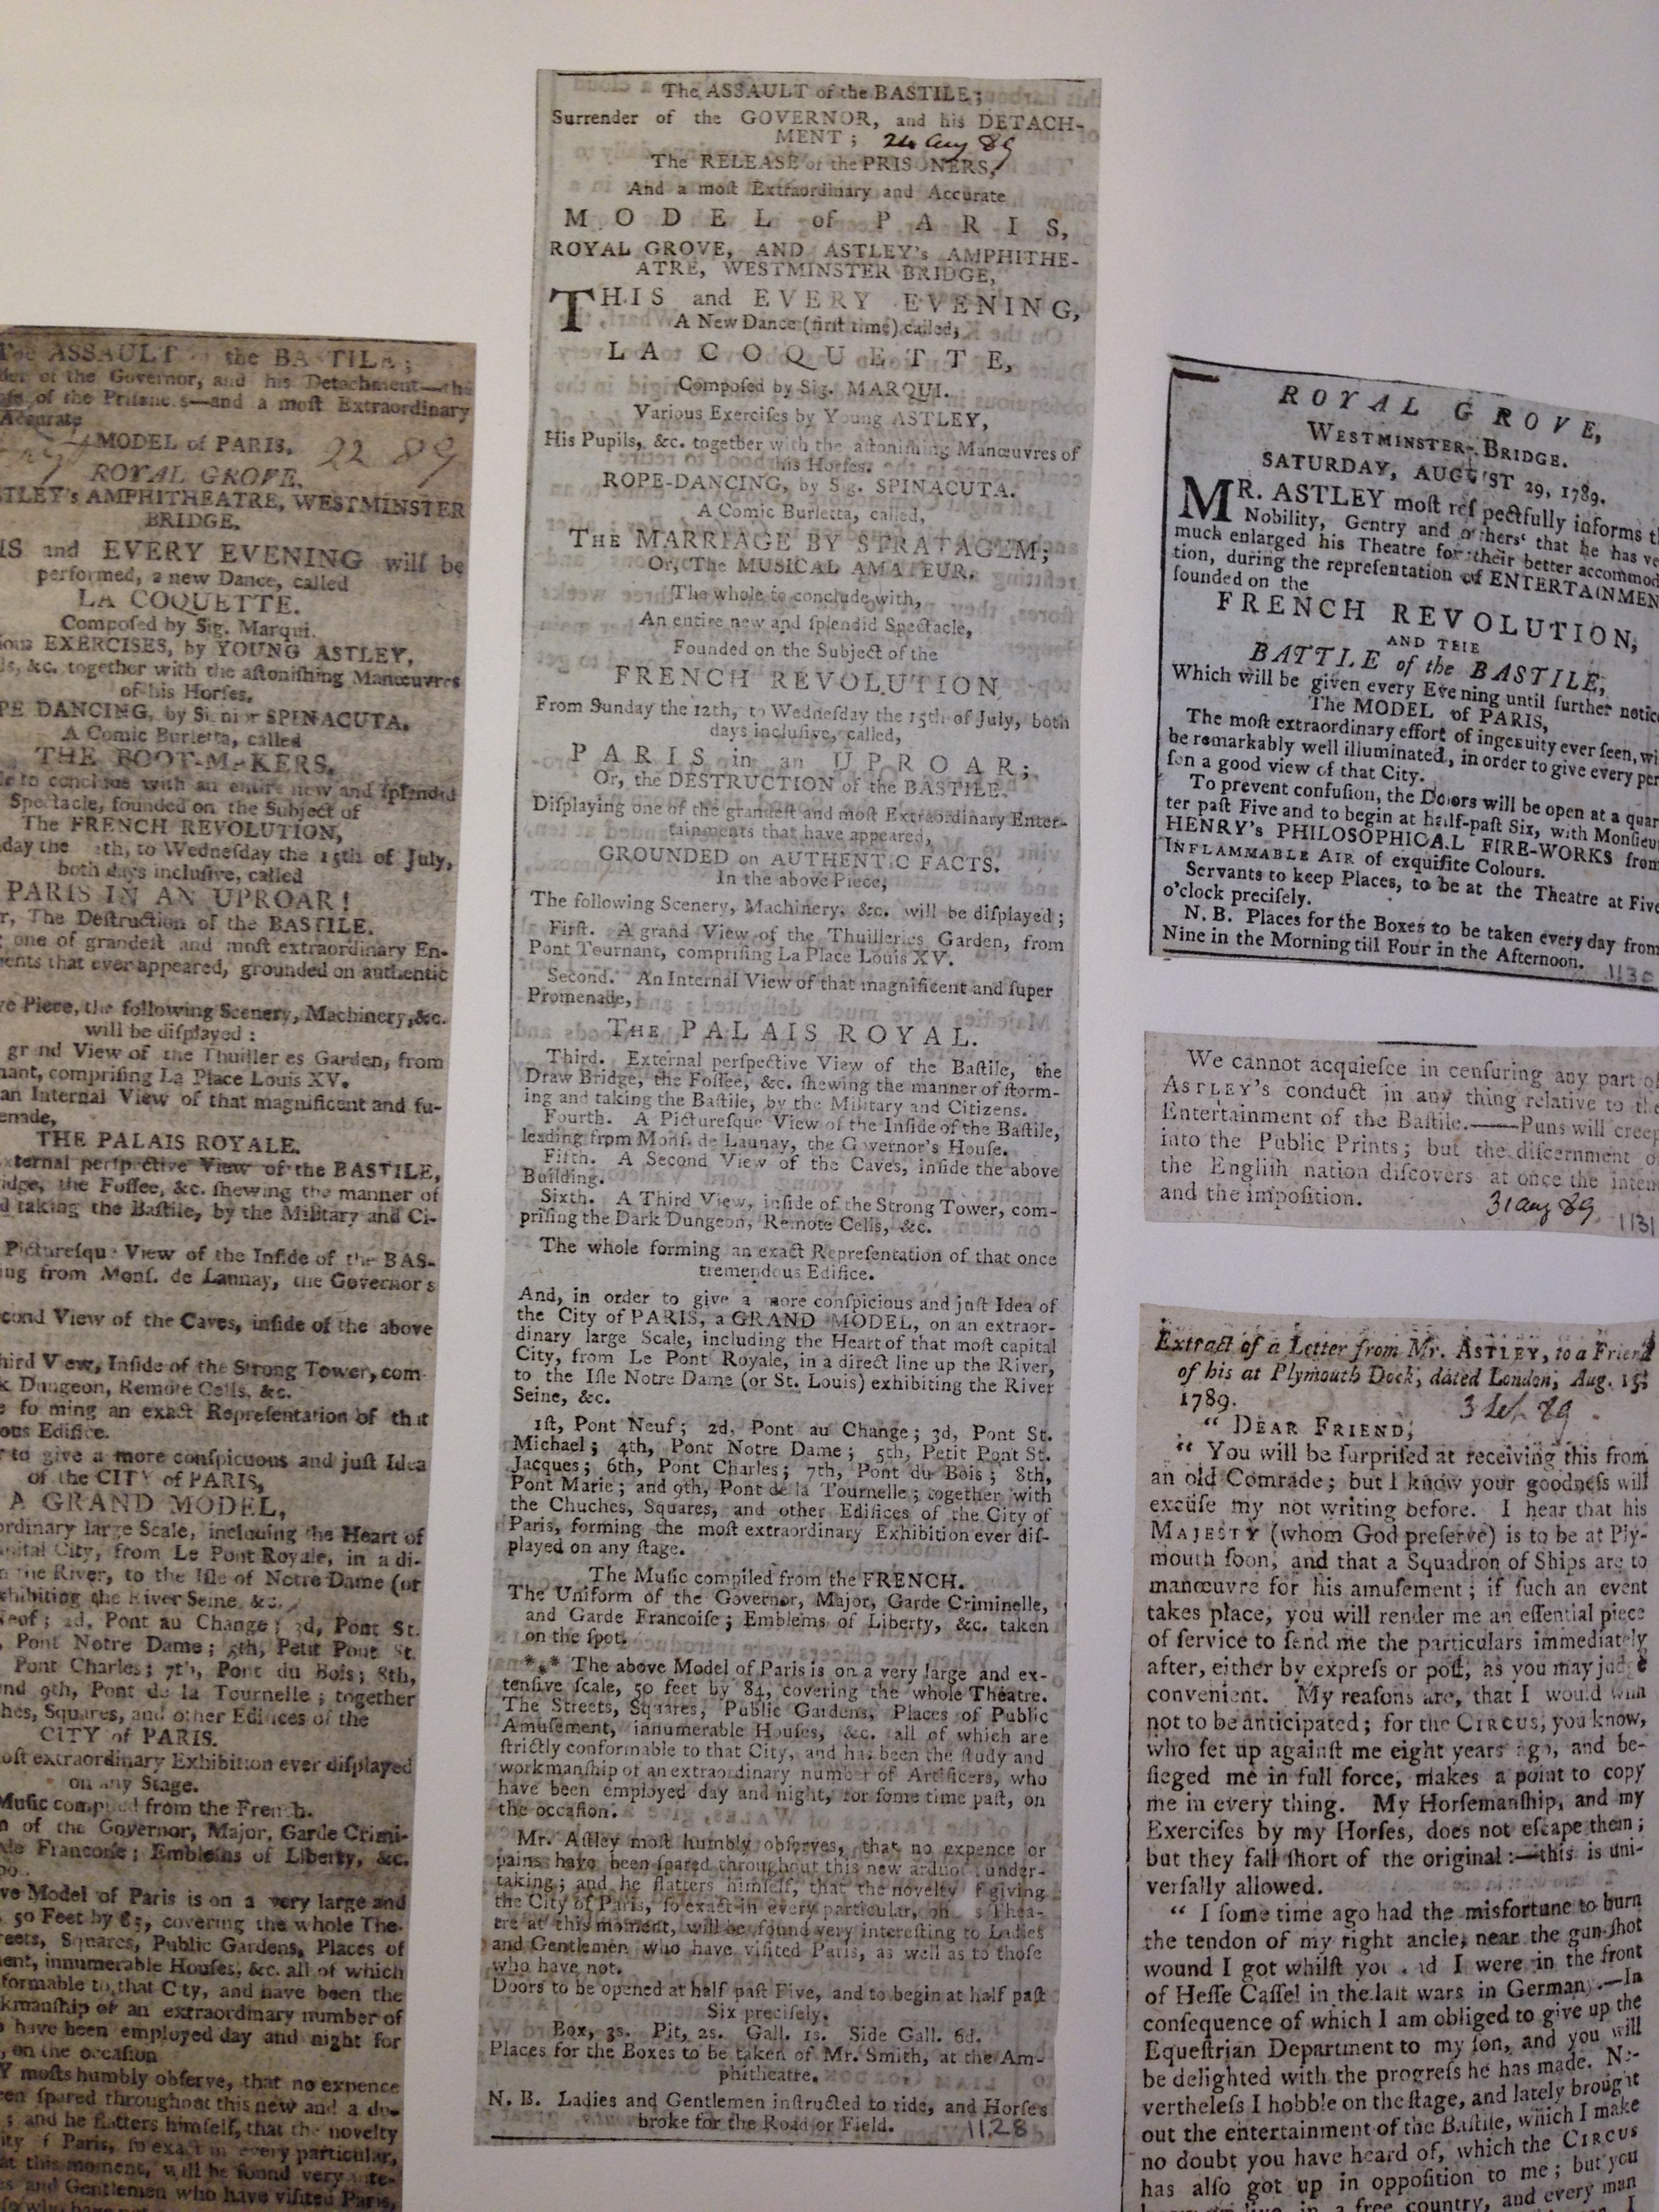 The ASSAULT the BASTILE;
der of the Governor, and his Detachment—the
of the Prisoners—and a moſt Extraordinary
Accurate
MODEL of PARIS.
22 89
ROYAL GROVE,
STLEY's AMPHITHEATRE, WESTMINSTER
BRIDGE.
IS and EVERY EVENING will be
performed, a new Dance, called
LA COQUETTE.
Compoſed by Sig. Marqui.
ious EXERCISES, by YOUNG ASTLEY,
ls, &c. together with the aſtoniſhing Manœuvres
of his Horſes.
PE DANCING, by Signior SPINACUTA.
A Comic Burletta, called
THE BOOT-MAKERS.
le to conclude with an entire new and ſplendid
Spectacle, founded on the Subject of
The FRENCH REVOLUTION,
day the th, to Wedneſday the 15th of July,
both days incluſive, called
PARIS IN AN UPROAR!
r, The Deſtruction of the BASTILE.
one of grandeſt and moſt extraordinary En-
ments that ever appeared, grounded on authentic
ve Piece, the following Scenery, Machinery, &c.
will be diſplayed:
grand View of the Thuilleries Garden, from
nant, compriſing La Place Louis XV.
an Internal View of that magnificent and fu-
enade,
THE PALAIS ROYALE.
xternal perſpective View of the BASTILE,
idge, the Foſſee, &c. ſhewing the manner of
d taking the Baſtile, by the Military and Ci-
Picturesque View of the Inſide of the BAS-
ing from Monſ. de Launay, the Governor's
econd View of the Caves, inſide of the above
hird View, Inſide of the Strong Tower, com-
k Dungeon, Remote Cells, &c.
e forming an exact Repreſentation of that
ous Edifice.
r to give a more conſpicuous and juſt Idea
of the CITY of PARIS,
A GRAND MODEL,
ordinary large Scale, including the Heart of
apital City, from Le Pont Royale, in a di-
n the River, to the Iſle of Notre Dame (or
xhibiting the River Seine, &c.
Neuf; 2d, Pont au Change; 3d, Pont St.
, Pont Notre Dame; 5th, Petit Pont St.
Pont Charles; 7th, Pont du Bois; 8th,
nd 9th, Pont de la Tournelle; together
hes, Squares, and other Edifices of the
CITY of PARIS.
oſt extraordinary Exhibition ever diſplayed
on any Stage.
Muſic compiled from the French.
m of the Governor, Major, Garde Crimi-
de Francoiſe; Emblems of Liberty, &c.
po.
ve Model of Paris is on a very large and
, 50 Feet by 85, covering the whole The-
reets, Squares, Public Gardens, Places of
ment, innumerable Houſes, &c. all of which
formable to that City, and have been the
kmanſhip of an extraordinary number of
o have been employed day and night for
, on the occaſion
Y moſts humbly obſerve, that no expence
een ſpared throughout this new and a du-
; and he flatters himſelf, that the novelty
ity f Paris, ſo exact in every particular,
at this moment, will be found very inte-
es and Gentlemen who have viſited Paris,
The ASSAULT of the BASTILE;
Surrender of the GOVERNOR, and his DETACH-
MENT; 24 Aug 89
The RELEASE of the PRISONERS,
And a moſt Extraordinary and Accurate
MODEL of PARIS,
ROYAL GROVE, AND ASTLEY's AMPHITHE-
ATRE, WESTMINSTER BRIDGE,
THIS and EVERY EVENING,
A New Dance (firſt time) called,
LA COQUETTE,
Compoſed by Sig. MARQUI.
Various Exerciſes by Young ASTLEY,
His Pupils, &c. together with the aſtoniſhing Manœuvres of
his Horſes.
ROPE-DANCING, by Sig. SPINACUTA.
A Comic Burletta, called,
THE MARRIAGE BY STRATAGEM;
Or, The MUSICAL AMATEUR.
The whole to conclude with,
An entire new and ſplendid Spectacle,
Founded on the Subject of the
FRENCH REVOLUTION
From Sunday the 12th, to Wedneſday the 15th of July, both
days incluſive, called,
PARIS in an UPROAR;
Or, the DESTRUCTION of the BASTILE.
Diſplaying one of the grandeſt and moſt Extraordinary Enter-
tainments that have appeared,
GROUNDED on AUTHENTIC FACTS.
In the above Piece,
The following Scenery, Machinery, &c. will be diſplayed;
Firſt. A grand View of the Thuilleries Garden, from
Pont Tournant, compriſing La Place Louis XV.
Second. An Internal View of that magnificent and ſuper
Promenade,
THE PALAIS ROYAL.
Third. External perſpective View of the Baſtile, the
Draw Bridge, the Foſſee, &c. ſhewing the manner of ſtorm-
ing and taking the Baſtile, by the Military and Citizens.
Fourth. A Pictureſque View of the Inſide of the Baſtile,
leading from Monſ. de Launay, the Governor's Houſe.
Fifth. A Second View of the Caves, inſide the above
Building.
Sixth. A Third View, inſide of the Strong Tower, com-
priſing the Dark Dungeon, Remote Cells, &c.
The whole forming an exact Repreſentation of that once
tremendous Edifice.
And, in order to give a more conſpicious and juſt Idea of
the City of PARIS, a GRAND MODEL, on an extraor-
dinary large Scale, including the Heart of that moſt capital
City, from Le Pont Royale, in a direct line up the River,
to the Iſle Notre Dame (or St. Louis) exhibiting the River
Seine, &c.
1ſt, Pont Neuf; 2d, Pont au Change; 3d, Pont St.
Michael; 4th, Pont Notre Dame; 5th, Petit Pont St.
Jacques; 6th, Pont Charles; 7th, Pont du Bois; 8th,
Pont Marie; and 9th, Pont de la Tournelle; together with
the Chuches, Squares, and other Edifices of the City of
Paris, forming the moſt extraordinary Exhibition ever diſ-
played on any ſtage.
The Muſic compiled from the FRENCH.
The Uniform of the Governor, Major, Garde Criminelle,
and Garde Francoiſe; Emblems of Liberty, &c. taken
on the ſpot.
*** The above Model of Paris is on a very large and ex-
tenſive ſcale, 50 feet by 84, covering the whole Theatre.
The Streets, Squares, Public Gardens, Places of Public
Amuſement, innumerable Houſes, &c. all of which are
ſtrictly conformable to that City, and has been the ſtudy and
workmanſhip of an extraordinary number of Artificers, who
have been employed day and night, for ſome time paſt, on
the occaſion.
Mr. Aſtley moſt humbly obſerves, that no expence or
pains have been ſpared throughout this new arduous under-
taking; and he flatters himſelf, that the novelty f giving
the City of Paris, ſo exact in every particular, on s Thea-
tre at this moment, will be found very intereſting to Ladies
and Gentlemen who have viſited Paris, as well as to thoſe
who have not.
Doors to be opened at half paſt Five, and to begin at half paſt
Six preciſely.
Box, 3s. Pit, 2s. Gall. 1s. Side Gall. 6d.
Places for the Boxes to be taken of Mr. Smith, at the Am-
phitheatre.
N. B. Ladies and Gentlemen inſtructed to ride, and Horſes
broke for the Road or Field. 1128
ROYAL GROVE,
WESTMINSTER-BRIDGE.
SATURDAY, AUGUST 29, 1789.
MR. ASTLEY moſt reſpectfully informs t
Nobility, Gentry and others that he has ve
much enlarged his Theatre for their better accommod
tion, during the repreſentation of ENTERTAINMEN
founded on the
FRENCH REVOLUTION,
AND THE
BATTLE of the BASTILE,
Which will be given every Evening until further notice
The MODEL of PARIS,
The moſt extraordinary effort of ingenuity ever ſeen, wi
be remarkably well illuminated, in order to give every per
ſon a good view of that City.
To prevent confuſion, the Doors will be open at a quar
ter paſt Five and to begin at half-paſt Six, with Monſieu
HENRY's PHILOSOPHICAL FIRE-WORKS from
INFLAMMABLE AIR of exquiſite Colours.
Servants to keep Places, to be at the Theatre at Five
o'clock preciſely.
N. B. Places for the Boxes to be taken every day from
Nine in the Morning till Four in the Afternoon. 1130
We cannot acquieſce in cenſuring any part of
ASTLEY's conduct in any thing relative to the
Entertainment of the Baſtile.——Puns will creep
into the Public Prints; but the diſcernment o
the Engliſh nation diſcovers at once the inten
and the impoſition. 31 Aug 89
1131
Extract of a Letter from Mr. ASTLEY, to a Friend
of his at Plymouth Dock, dated London, Aug. 15
1789.
3 Sep. 89
" DEAR FRIEND,
" You will be ſurpriſed at receiving this from
an old Comrade; but I know your goodneſs will
excuſe my not writing before. I hear that his
MAJESTY (whom God preſerve) is to be at Ply-
mouth ſoon, and that a Squadron of Ships are to
manœuvre for his amuſement; if ſuch an event
takes place, you will render me an eſſential piece
of ſervice to ſend me the particulars immediately
after, either by expreſs or poſt, as you may judge
convenient. My reaſons are, that I would wiſh
not to be anticipated; for the CIRCUS, you know,
who ſet up againſt me eight years ago, and be-
ſieged me in full force, makes a point to copy
me in every thing. My Horſemanſhip, and my
Exerciſes by my Horſes, does not eſcape them;
but they fall ſhort of the original:—this is uni-
verſally allowed.
" I ſome time ago had the misfortune to burn
the tendon of my right ancle, near the gun-ſhot
wound I got whilſt you and I were in the front
of Heſſe Caſſel in the laſt wars in Germany.—In
conſequence of which I am obliged to give up the
Equeſtrian Department to my ſon, and you will
be delighted with the progreſs he has made. Ne-
vertheleſs I hobble on the ſtage, and lately brought
out the entertainment of the Baſtile, which I make
no doubt you have heard of, which the CIRCUS
has alſo got up in oppoſition to me; but you
live in a free country, and every man